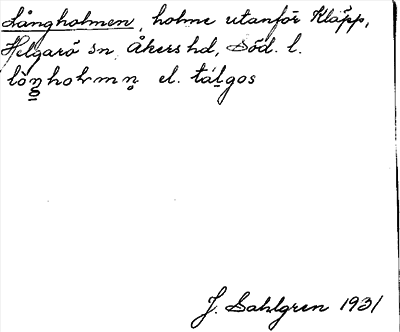 Långholmen, holme utanför Kläpp,
Helgarö sn, Åkers hd, Söd. l.
el. tálgos
J. Sahlgren 1931